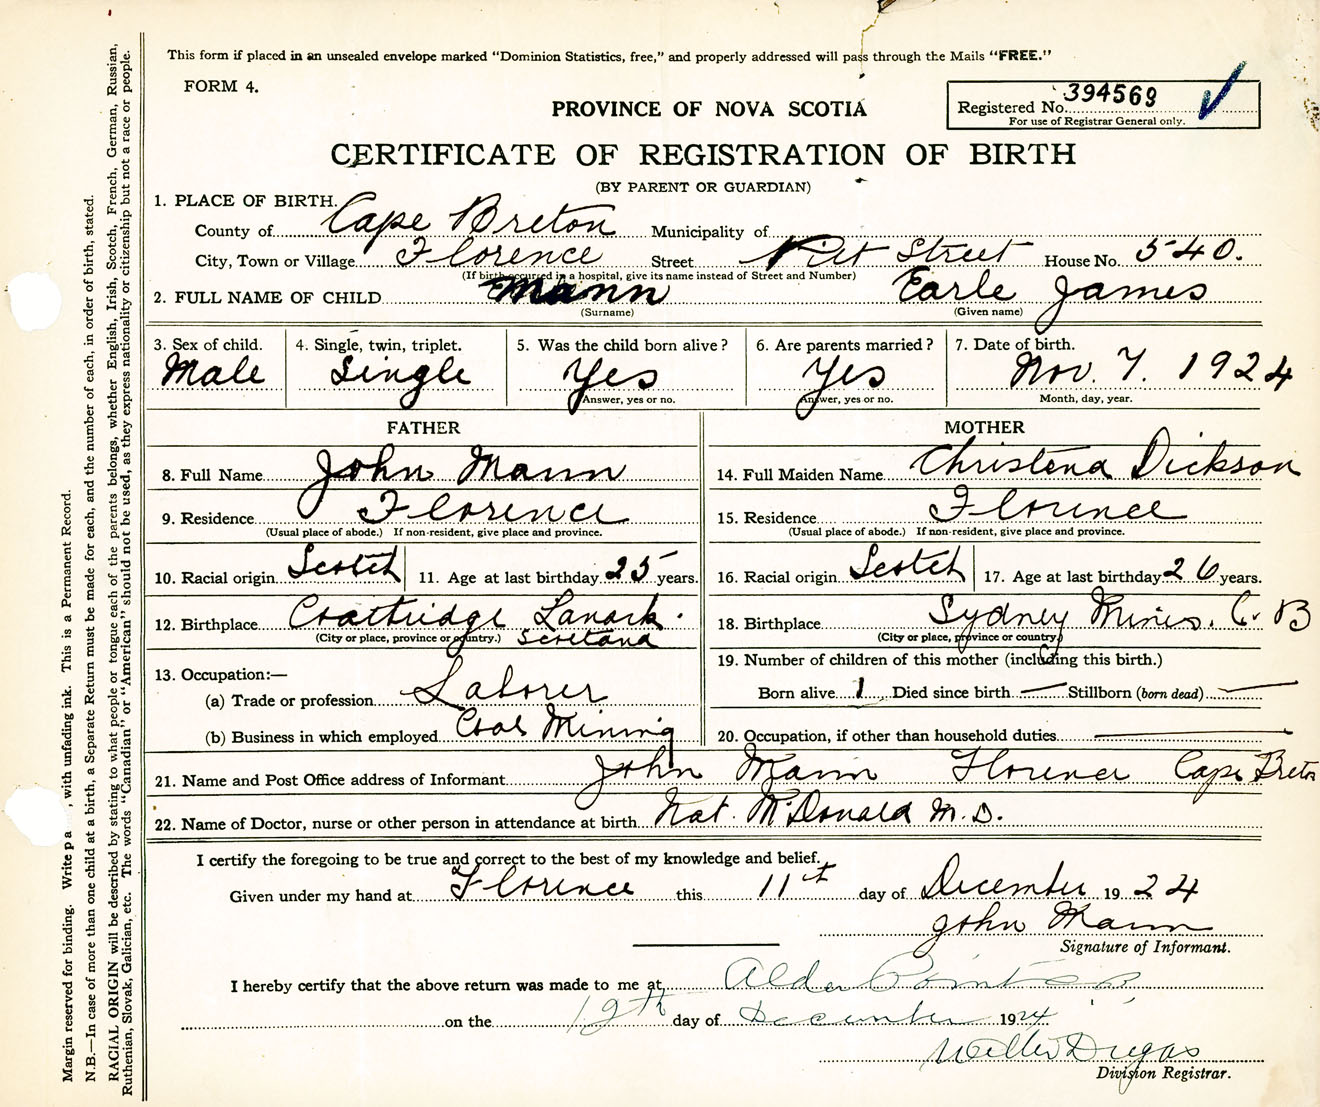 This form if placed in an unsealed envelope marked "Dominion Statistics, free," and properly addressed will pass through the Mails "FREE."
FORM 4.
Registered No. 394569
For use of Registrar General only.
PROVINCE OF NOVA SCOTIA
CERTIFICATE OF REGISTRATION OF BIRTH
(BY PARENT OR GUARDIAN)
1. PLACE OF BIRTH.
County of Cape Breton Municipality of
City, Town or Village Florence Street Pitt Street House No. 540.
(If birth occurred in a hospital, give its name instead of Street and Number)
2. FULL NAME OF CHILD Mann Earle James
(Surname) (Given name)
3. Sex of child. 4. Single, twin, triplet. 5. Was the child born alive? 6. Are parents married? 7. Date of birth.
Male Single Yes Yes Nov. 7. 1924
Answer, yes or no. Answer, yes or no. Month, day, year.
FATHER
8. Full Name John Mann
9. Residence Florence
(Usual place of abode.) If non-resident, give place and province.
10. Racial origin Scotch 11. Age at last birthday 25 years.
12. Birthplace Coatbridge Lanark.
(City or place, province or country.) Scotland
13. Occupation:—
(a) Trade or profession Laborer
(b) Business in which employed Coal Mining
MOTHER
14. Full Maiden Name Christena Dickson
15. Residence Florence
(Usual place of abode.) If non-resident, give place and province.
16. Racial origin Scotch 17. Age at last birthday 26 years.
18. Birthplace Sydney Mines. C. B
(City or place, province or country)
19. Number of children of this mother (including this birth.)
Born alive 1 Died since birth — Stillborn (born dead) —
20. Occupation, if other than household duties —
21. Name and Post Office address of Informant John Mann Florence Cape Breton
22. Name of Doctor, nurse or other person in attendance at birth Nat. McDonald M.D.
I certify the foregoing to be true and correct to the best of my knowledge and belief.
Given under my hand at Florence this 11th day of December 1924
John Mann
Signature of Informant.
I hereby certify that the above return was made to me at Alder Point CB
on the 12th day of December 1924
Division Registrar.
Margin reserved for binding. Write with unfading ink. This is a Permanent Record.
N.B.—In case of more than one child at a birth, a Separate Return must be made for each, and the number of each, in order of birth, stated.
RACIAL ORIGIN will be described by stating to what people or tongue each of the parents belongs, whether English, Irish, Scotch, French, German, Russian,
Ruthenian, Slovak, Galician, etc. The words "Canadian" or "American" should not be used, as they express nationality or citizenship but not a race or people.